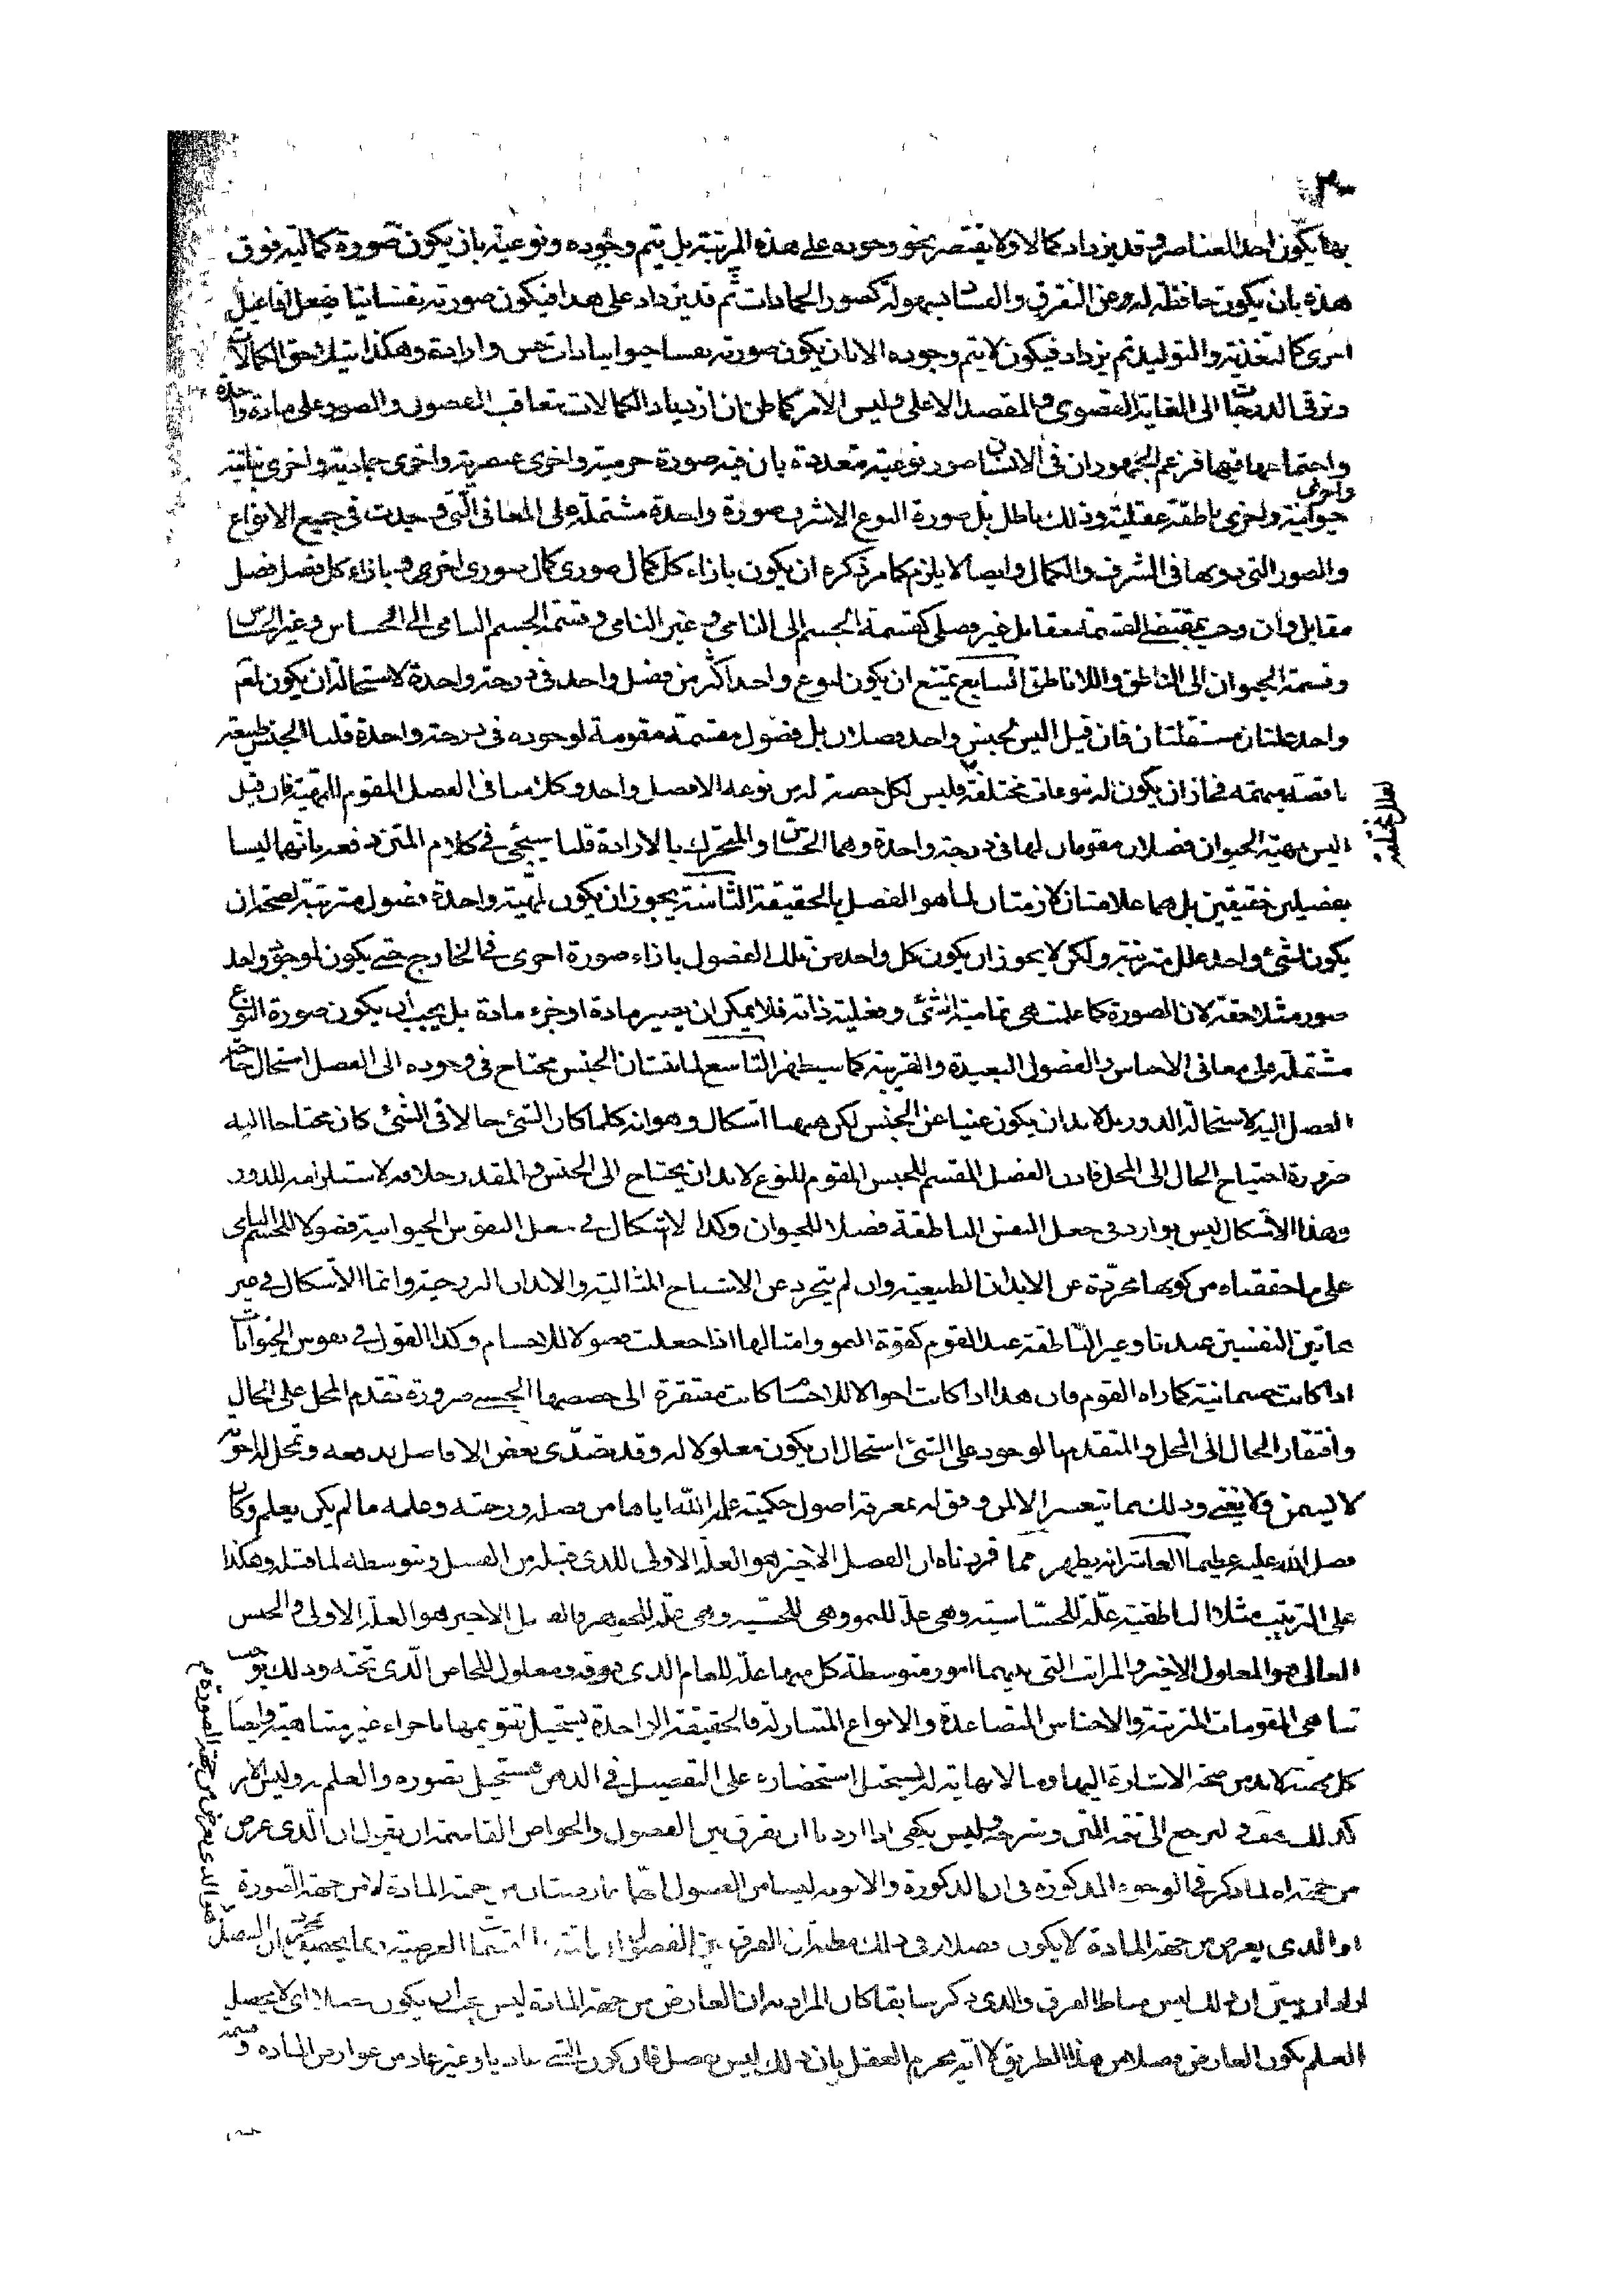 بها يكون احد العناصر وقد يزداد كمالا ولا يقتصر نحو وجوده على هذه المرتبة بل يتم وجوده ونوعيته بان يكون صورة كمالية فوق
هذه بان يكون حافظة له عن التفرق والفساد بسهولة كصور الجمادات ثم قد يزداد على هذا فيكون صورته نفسا نباتيا يفعل افاعيل
اخرى كالتغذية والتوليد ثم يزداد فيكون لا يتم وجوده الا بان يكون صورته نفسا حيوانيا ذات حس وارادة وهكذا يتلاحق الكمالات
وترقى الدرجات الى الغاية القصوى والمقصد الاعلى وليس الامر كما ظن ان ازدياد الكمالات بتعاقب الفصول والصور على مادة واحدة
واجتماعها فيها فزعم الجمهور ان في الانسان صور نوعية متعددة بان فيه صورة جرمية واخرى عنصرية واخرى جمادية واخرى نباتية واخرى
حيوانية واخرى ناطقة عقلية وذلك باطل بل صورة النوع الاشرف صورة واحدة مشتملة على المعانى التي وجدت في جميع الانواع
والصور التي دونها في الشرف والكمال وايضا لا يلزم كما مر ذكره ان يكون بازاء كل كمال صورى كمال صورى اخرى وبازاء كل فصل فصل
مقابل وان وجب بمقتضى القسمة مقابل غير فصلي كقسمة الجسم الى النامي وغير النامي وقسمة الجسم النامي الى الحساس وغير الحساس
وقسمة الحيوان الى الناطق واللاناطق السابع يمتنع ان يكون لنوع واحد اكثر من فصل واحد في درجة واحدة لاستحالة ان يكون لعم
واحد علتان مستقلتان فان قيل اليس لجنس واحد فصلان بل فصول مقسمة مقومة لوجوده في درجة واحدة قلنا الجنس طبيعة
ناقصة مبهمة فجاز ان يكون له تنوعات مختلفة فليس لكل حصة له من نوعه الا فصل واحد وكلامنا في الفصل المقوم للمهية فان قيل
اليس مهية الحيوان فصلان مقومان لها في درجة واحدة وهما الحساس والمتحرك بالارادة قلنا سيجيء في كلام المتن دفعه بانهما ليسا
بفصلين حقيقيين بل هما علامتان لازمتان لما هو الفصل بالحقيقة الثامنة يجوز ان يكون لمهية واحدة فصول مترتبة لصحة ان
يكون لشيء واحد علل مترتبة ولكن لا يجوز ان يكون كل واحد من تلك الفصول بازاء صورة اخرى في الخارج حتى يكون لموجود واحد
صور متلاحقة لان الصورة كما علمت هي تمامية الشيء وفعلية ذاته فلا يمكن ان يصير مادة او جزء مادة بل يجب ان يكون صورة النوع
مشتملة على معانى الاجناس والفصول البعيدة والقريبة كما سيظهر التاسع لما ثبت ان الجنس يحتاج في وجوده الى الفصل استحال حاجة
الفصل اليه لاستحالة الدور بل لا بد ان يكون غنيا عن الجنس لكن ههنا اشكال وهو انه كلما كان الشيء حالا في الشيء كان محتاجا اليه
ضرورة احتياج الحال الى المحل فاذن الفصل المقسم للجنس المقوم للنوع لا بد ان يحتاج الى الجنس والمقدر خلافه لاستلزامه للدور
وهذا الاشكال ليس بوارد في جعل النفس الناطقة فصلا للحيوان وكذا لا اشكال في جعل النفوس الحيوانية فصولا للجسم النامى
على ما حققناه من كونها مجردة عن الابدان الطبيعية وان لم يتجرد عن الاشباح المثالية والابدان البرزخية وانما الاشكال في غير
هاتين النفسين عندنا وغير الناطقة عند القوم كقوة النمو وامثالها اذا جعلت فصولا للاجسام وكذا القول في نفوس الحيوانات
اذا كانت جسمانية كما راه القوم فان هذا اذا كانت احوالا للاجسام كانت مفتقرة الى حصصها الجنسية ضرورة تقدم المحل على الحال
وافتقار الحال الى المحل والمتقدم بالوجود على الشيء استحال ان يكون معلولا له وقد تصدى بعض الافاضل بدفعه وتمحل لاجوبة
لا يسمن ولا يغنى وذلك مما يتعسر الا لمن وفق له بمعرفة اصول حكمية علمه الله اياها من فضله ورحمته وعلمه ما لم يكن يعلم وكان
فضل الله عليه عظيما العاشر انه يظهر مما قررناه ان الفصل الاخير هو العلة الاولى للذى قبله من الفصل وبتوسطه لما قبله وهكذا
على الترتيب مثلا الناطقية علة للحساسية وهى علة للنمو وهى للجسمية وهى علة للجوهر فالفصل الاخير هو العلة الاولى والجنس
العالى هو المعلول الاخير والمراتب التي بينهما امور متوسطة كل منها علة للعام الذى فوقه ومعلول للخاص الذى تحته وذلك يوجب
تناهى المقومات المترتبة والاجناس المتصاعدة والانواع المتنازلة فالحقيقة الواحدة يستحيل تقويمها باجزاء غير متناهية وايضا
كل مهية لا بد من صحة الاشارة اليها وما لا نهاية له يستحيل استحضاره على التفصيل في الذهن مستحيل تصوره والعلم به وليس الامر
كذلك ولنرجع الى تتمة المتن وشرحه وليس يكفى اذا اردنا ان نفرق بين الفصول والخواص القاسمة ان يقول ان الذى عرض
من جهة لما ذكر في الوجوه المذكورة في ان الذكورة والانوثة ليسا من الفصول انهما عارضتان من جهة المادة لا من جهة الصورة
والذى يعرض من جهة المادة لا يكون فصلا
اراد ان يبين ان ذلك ليس مناط الفرق والذى ذكر سابقا كان المراد به ان العارض من جهة المادة ليس يجب ان يكون فصلا اى لا يحصل
العلم بكون العارض فصلا من هذا الطريق لا انه يجزم العقل بان ذلك ليس بفصل فان كون الشيء غاذيا او غير غاذ من عوارض المادة